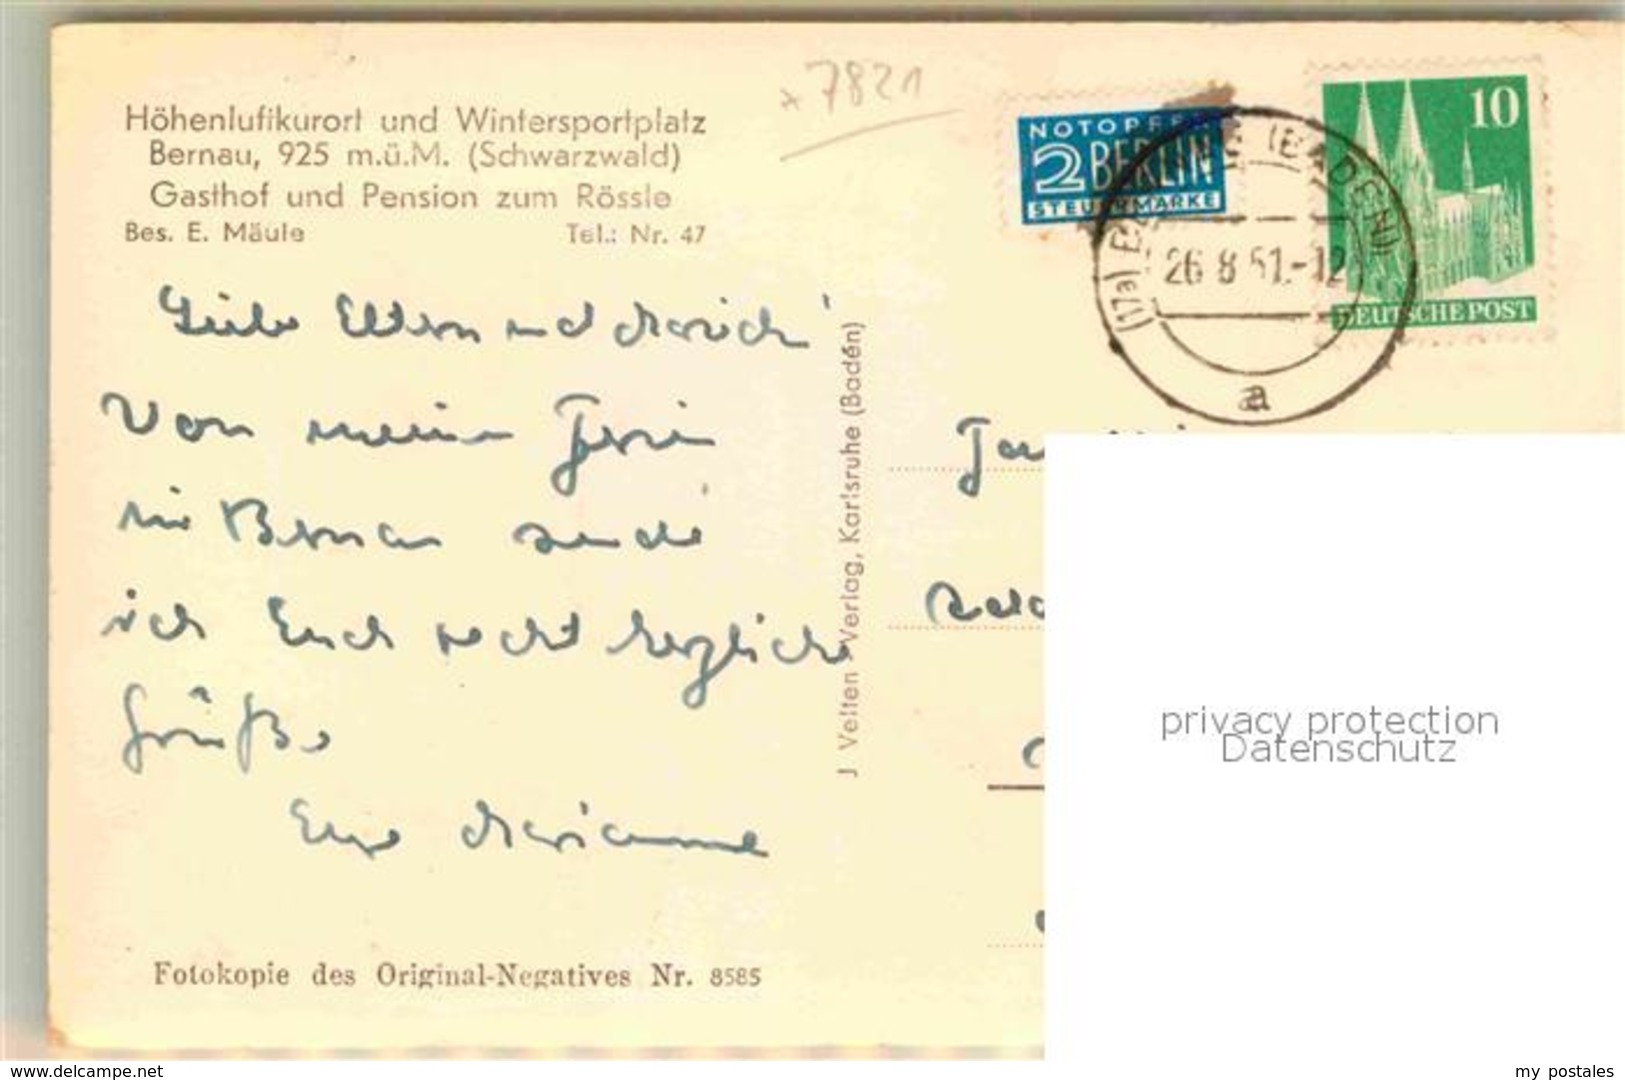 Höhenluftkurort und Wintersportplatz
Bernau, 925 m.ü.M. (Schwarzwald)
Gasthof und Pension zum Rössle
Bes. E. Mäule Tel.: Nr. 47
7821
NOTOPFER
2 BERLIN
STEUERMARKE
(BADEN)
(17a)
26 8 51.-12
a
10
DEUTSCHE POST
Liebe Eltern und
Von meinen Ferien
in Bernau sende
ich Euch recht herzliche
Grüße
Eure Marianne
J Velten Verlag, Karlsruhe (Baden)
Fotokopie des Original-Negatives Nr. 8585
privacy protection
Datenschutz
www.oldthing.de
my postales